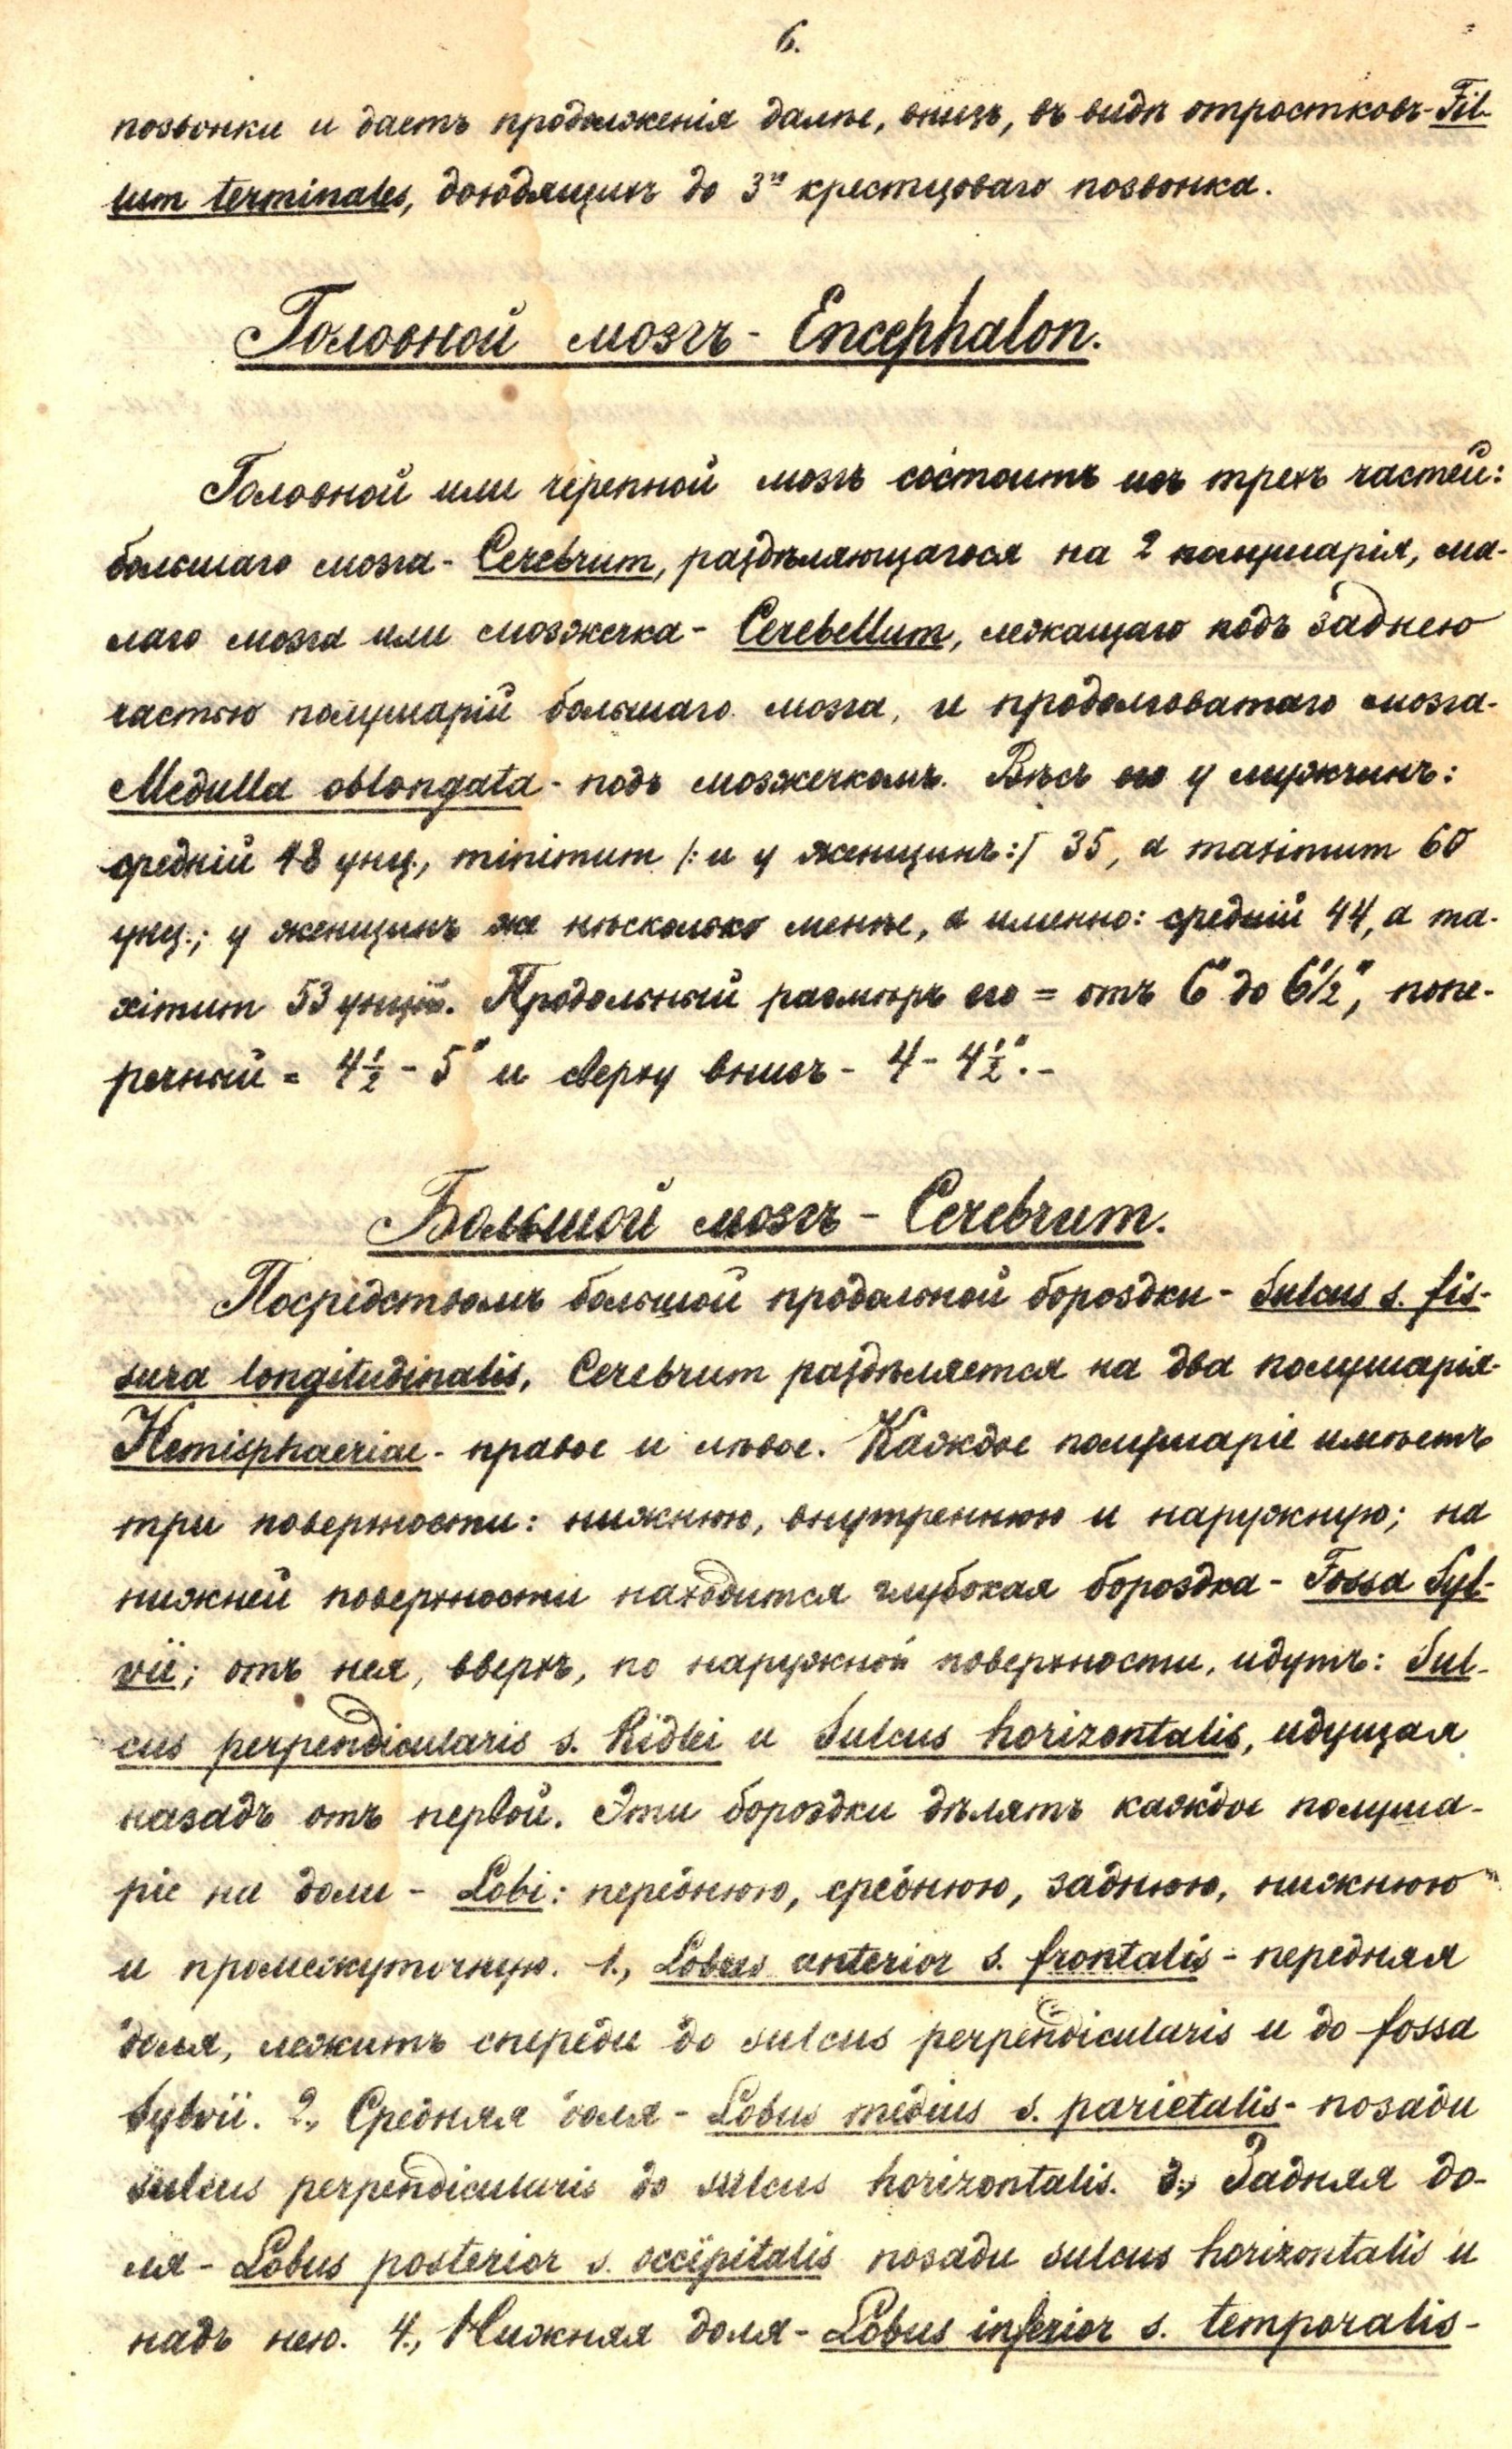 6.
позвонки и даетъ продолженія далѣе, внизъ, въ видѣ отростковъ - Fil-
lum terminales, доходящихъ до 3го крестцоваго позвонка.
Головной мозгъ - Encephalon.
Головной или черепной мозгъ состоитъ изъ трехъ частей:
большаго мозга - Cerebrum, раздѣляющагося на 2 полушарія, ма-
лаго мозга или мозжечка - Cerebellum, лежащаго подъ заднею
частью полушарій большаго мозга, и продолговатаго мозга -
Medulla oblongata - подъ мозжечкомъ. Вѣсъ его у мужчинъ:
средній 48 унц., minimum /: и у женщинъ :/ 35, а maximum 60
унц.; у женщинъ же нѣсколько менѣе, а именно: средній 44, а ma-
ximum 53 унціи. Продольный размѣръ его = отъ 6" до 6 1/2", попе-
речный = 4 1/2 - 5" и сверху внизъ - 4 - 4 1/2". -
Большой мозгъ - Cerebrum.
Посредствомъ большой продольной бороздки - Sulcus s. fis-
sura longitudinalis, Cerebrum раздѣляется на два полушарія -
Hemisphaeriae - правое и лѣвое. Каждое полушаріе имѣетъ
три поверхности: нижнюю, внутреннюю и наружную; на
нижней поверхности находится глубокая бороздка - Fossa Syl-
vii; отъ нея, вверхъ, по наружной поверхности, идутъ: Sul-
cus perpendicularis s. Ridlei и Sulcus horizontalis, идущая
назадъ отъ первой. Эти бороздки дѣлятъ каждое полуша-
ріе на доли - Lobi: переднюю, среднюю, заднюю, нижнюю
и промежуточную. 1., Lobus anterior s. frontalis - передняя
доля, лежитъ спереди до sulcus perpendicularis и до fossa
Sylvii. 2., Средняя доля - Lobus medius s. parietalis - позади
sulcus perpendicularis до sulcus horizontalis. 3., Задняя до-
ля - Lobus posterior s. occipitalis позади sulcus horizontalis и
надъ нею. 4., Нижняя доля - Lobus inferior s. temporalis -